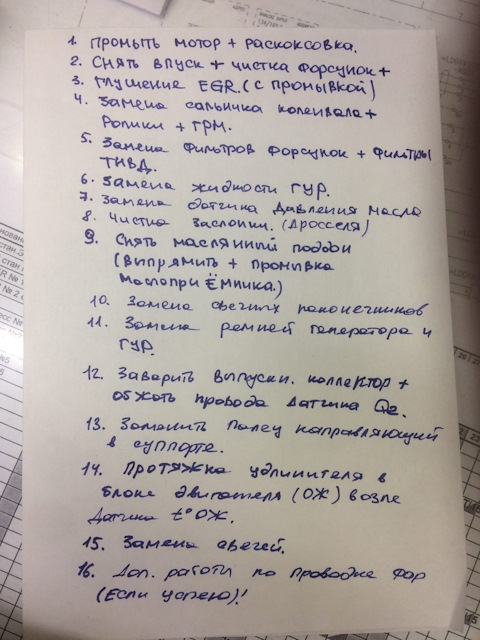 1. Промыть мотор + раскоксовка.
2. Снять впуск + чистка форсунок +
3. Глушение EGR. (с промывкой)
4. Замена сальника коленвала +
Ролики + ГРМ.
5. Замена фильтров форсунок + фильтры
ТНВД.
6. Замена жидкости ГУР.
7. Замена датчика давления масла
8. Чистка заслонки. (Дросселя)
9. Снять маслянный поддон
(Выпрямить + промывка
маслоприёмника.)
10. Замена свечных наконечников
11. Замена ремней генератора и
ГУР.
12. Заварить выпускн. коллектор +
обжать провода датчика O2.
13. Заменить палец направляющий
в суппорте.
14. Протяжка удлинителя в
блоке двигателя (ОЖ) возле
датчика t° ОЖ.
15. Замена свечей.
16. Доп. работы по проводке фар
(Если успею)!